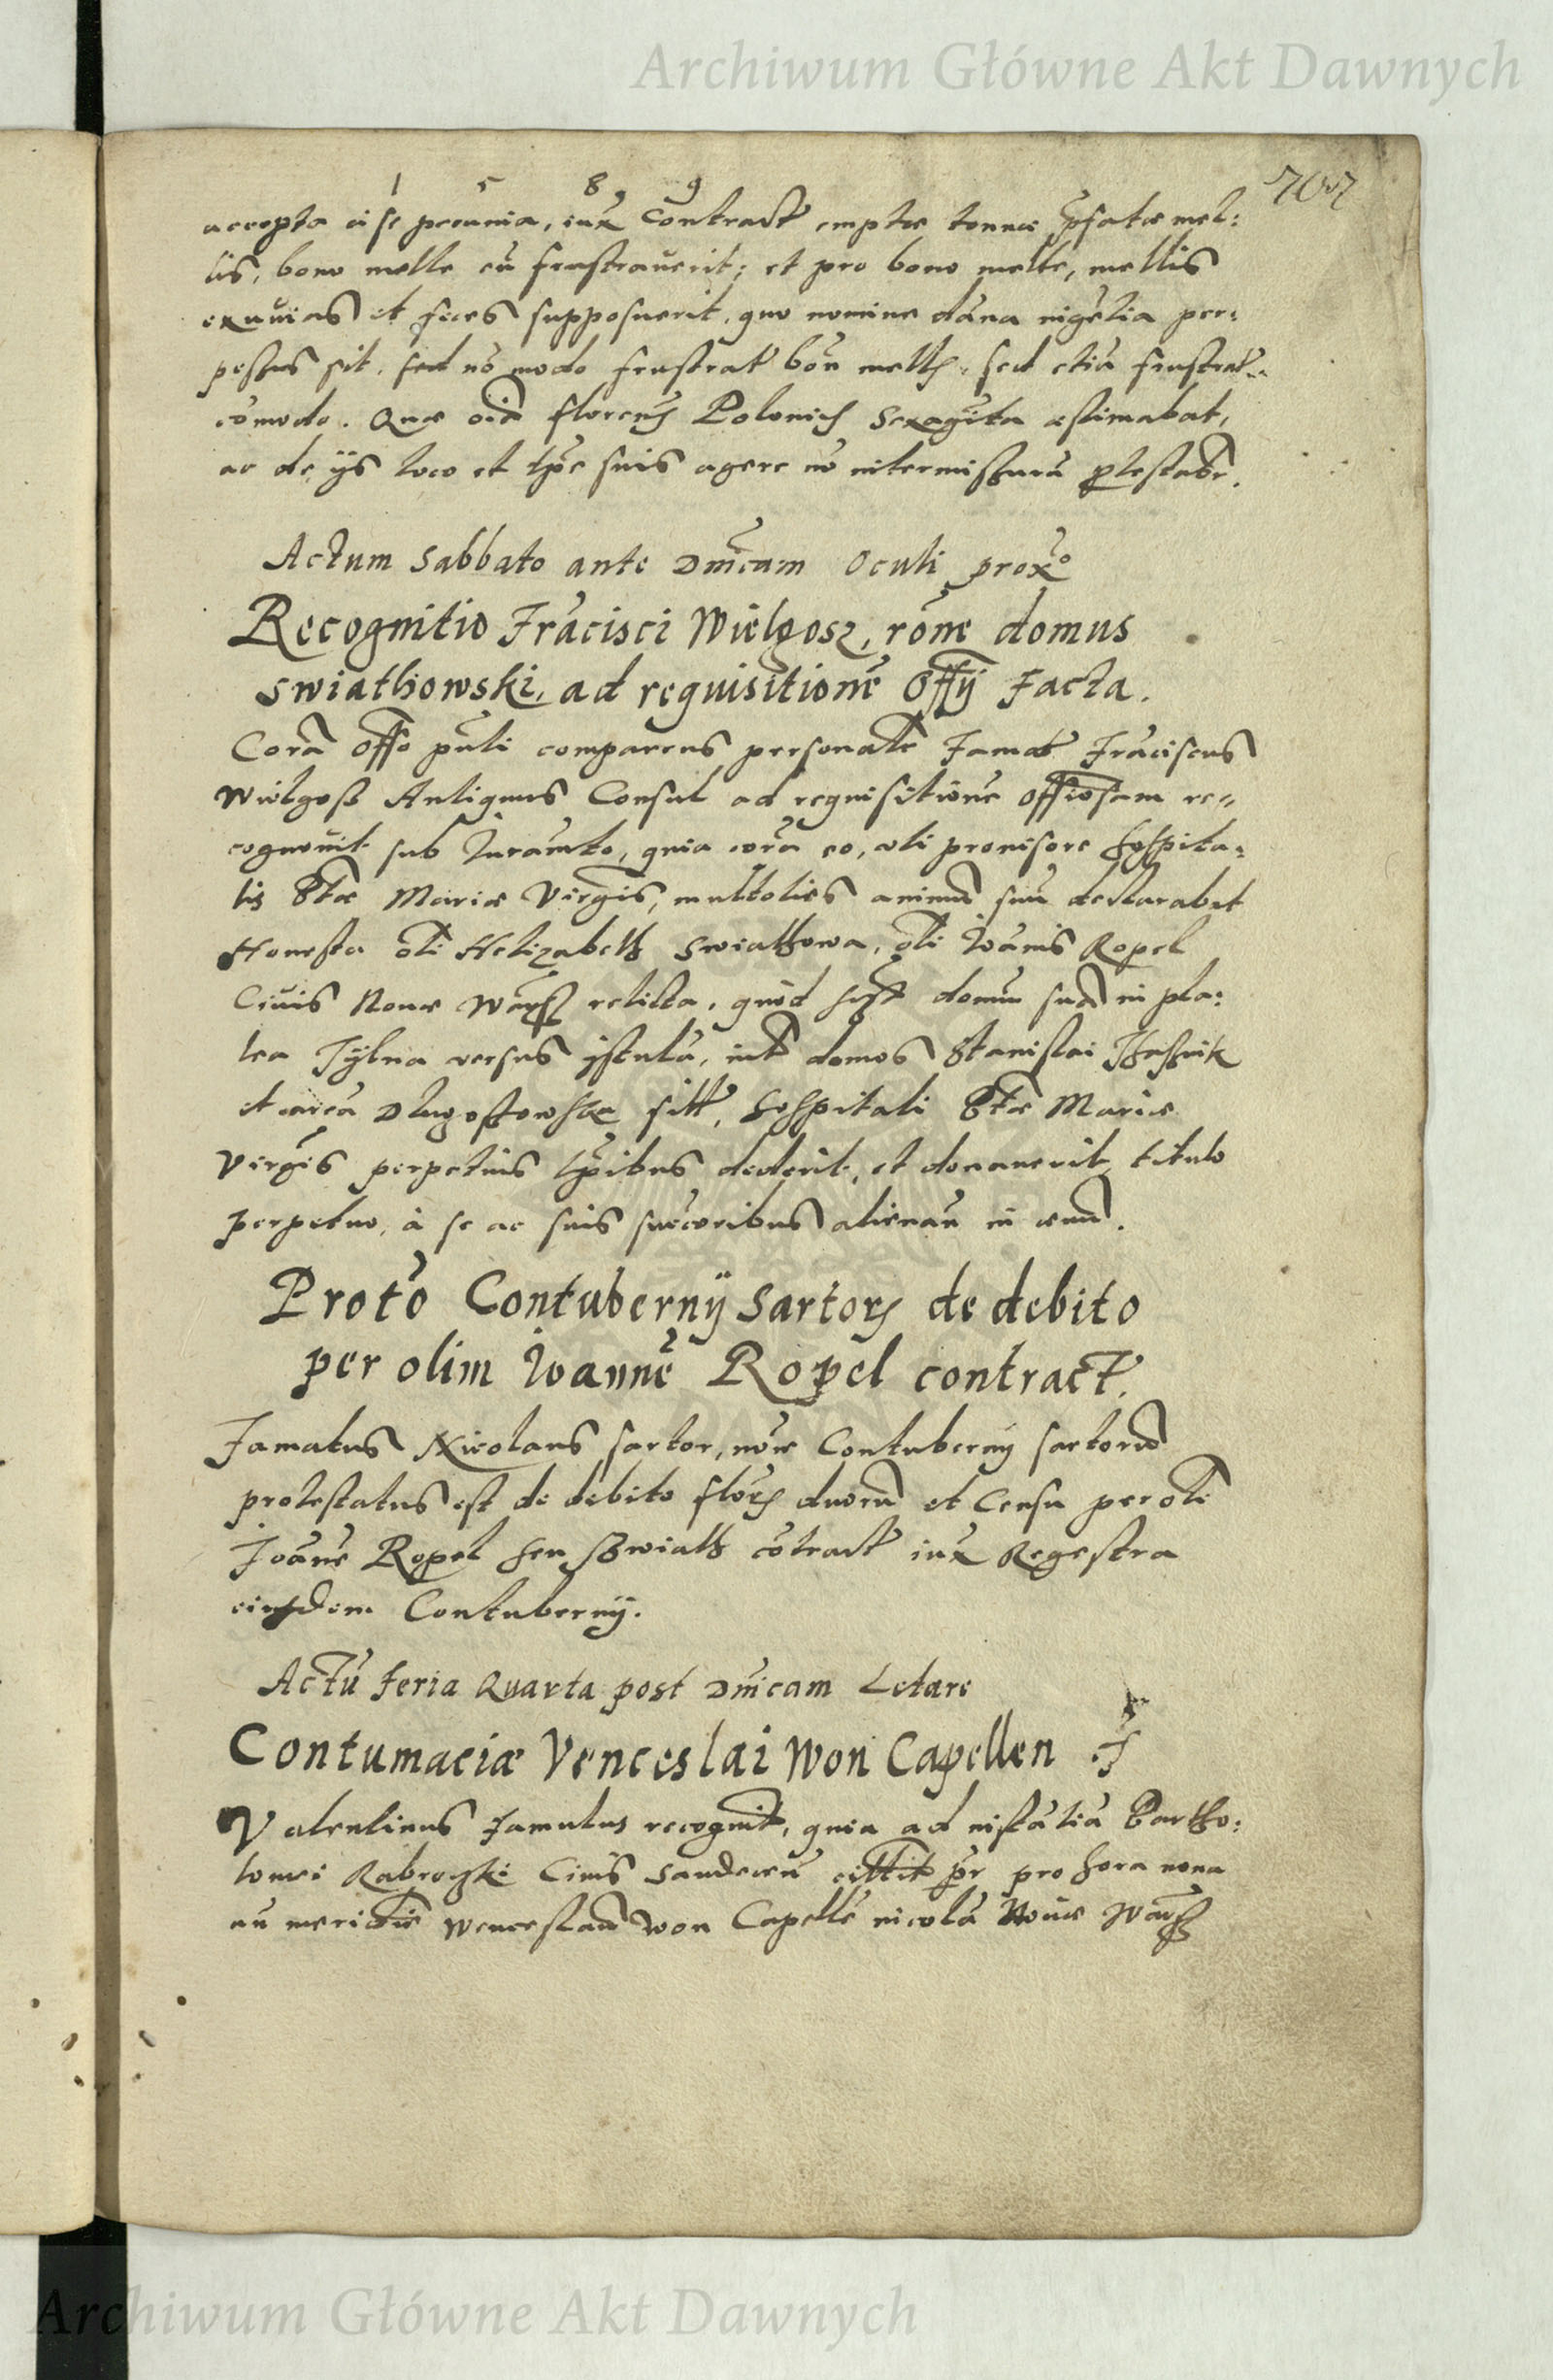 Archiwum Główne Akt Dawnych
1 5 8 9
707
accepta à se pecunia, iux Contract emptæ tonnæ p̃fatæ mel:
lis, bono melle eũ frustrauerit; et pro bono melle, mellis
exuuias et feces supposuerit, quo nomine dãna nigẽtia per:
pessus sit. sed nõ modo frustrat bõn mellis, sed etiã frustrat
cõmodo. Quæ oĩa floreñ Polonich Sexagĩta æstimabat,
ac de ijs loco et tp̃e suis agere nõ intermissurũ p̃testabr.
Actum Sabbato ante Dñicam Oculi proxº
Recognitio Frãcisci Wielgosz, rõne domus
Swiathowski, ad requisitionẽ Offij Facta.
Corã Offo pñti comparens personalr Famat Frãciscus
Wielgosz Antiquus Consul ad requisitionẽ offiosam re=
cognouit sub Iuramto, quia corã eo, uti prouisore hospita:
lis Btæ Mariæ Virgis, multoties animũ suũ declarabat
Honesta olĩ Helizabeth Swiathowa, olĩ Ioãnis Ropel
Ciuis Nouæ Warß relicta, quòd domũ suã in pla:
tea Fybna versus istulã, int domos Stanislai
et areã Dlugoszowska sitt, hospitali Btæ Mariæ
Virgis perpetuis tp̃ibus dederit, et donauerit titulo
perpetuo, à se ac suis succoribus alienañ in æuũ.
Protõ Contubernij Sartorũ de debito
per olim Ioannẽ Ropel contract.
Famatus Nicolaus sartor, nõie Contubernij sartorũ
protestatus est de debito floreñ duorũ et Censu per olĩ
Joãnẽ Ropel seu Swiath cõtract iux Regestra
eiusdem Contubernij.
Actũ Feria Quarta post Dñicam Letare
Contumaciæ Venceslai Won Capellen
Valentinus Famulus recognit, quia ad instãtiã Bartho:
lomei Rabrozki Ciuis Sandeceñ cittit pr pro hora nona
an meridiẽ Wenceslaũ Won Capellẽ incolã Nouæ Warß
Archiwum Główne Akt Dawnych